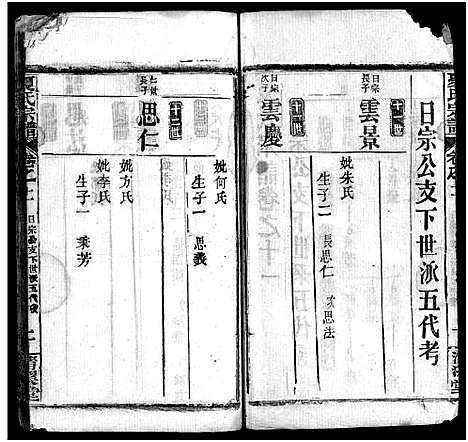 夏氏宗譜
卷之十一
日宗公支下世派五代考
十一世
日宗長子
雲景
妣朱氏
生子二
長思仁
次思法
十一世
日宗次子
雲慶
妣何氏
生子一
思義
十二世
長子
思仁
妣方氏
妣李氏
生子一
秉芳
氏宗譜
卷之十一
日宗公支下世派五代考